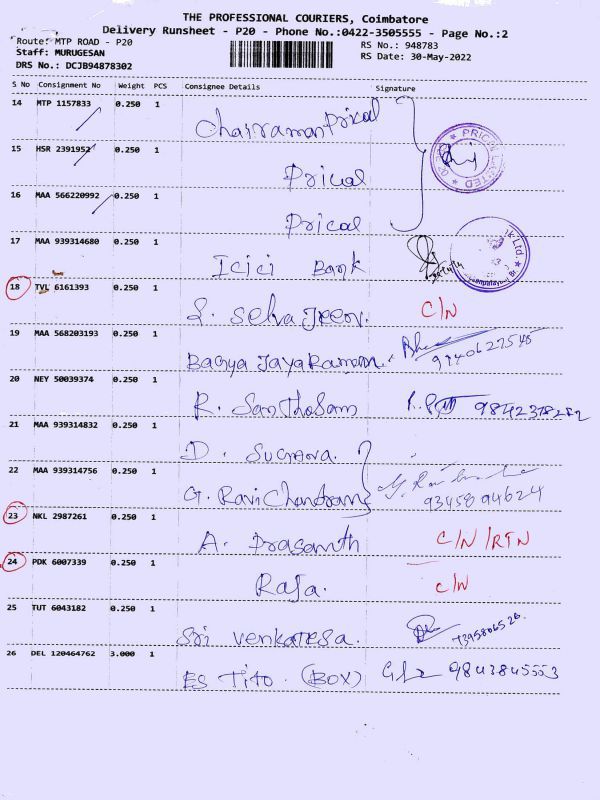 THE PROFESSIONAL COURIERS, Coimbatore
Delivery Runsheet - P20 - Phone No.:0422-3505555 - Page No.:2
Route: MTP ROAD - P20
RS No.: 948783
Staff: MURUGESAN
RS Date: 30-May-2022
DRS No.: DCJB94878302
S No Consignment No Weight PCS Consignee Details Signature
14 MTP 1157833 0.250 1
Chairaman Prical
15 HSR 2391952 0.250 1
Prical
PRICOL LIMITED
16 MAA 566220992 0.250 1
Prical
17 MAA 939314680 0.250 1
Icici Bank
k Ltd
18 TVL 6161393 0.250 1
S. Selva C/N
19 MAA 568203193 0.250 1
Bagya JayaRaman. 9940627548
20 NEY 50039374 0.250 1
R. Santhosam
21 MAA 939314832 0.250 1
D.
22 MAA 939314756 0.250 1
G. Ravichandran 9345894624
23 NKL 2987261 0.250 1
A. Prasanth C/N/RTN
24 PDK 6007339 0.250 1
Raja. C/N
25 TUT 6043182 0.250 1
Sri Venkatesa.
26 DEL 120464762 3.000 1
ES Tito. (BOX) 9843845553